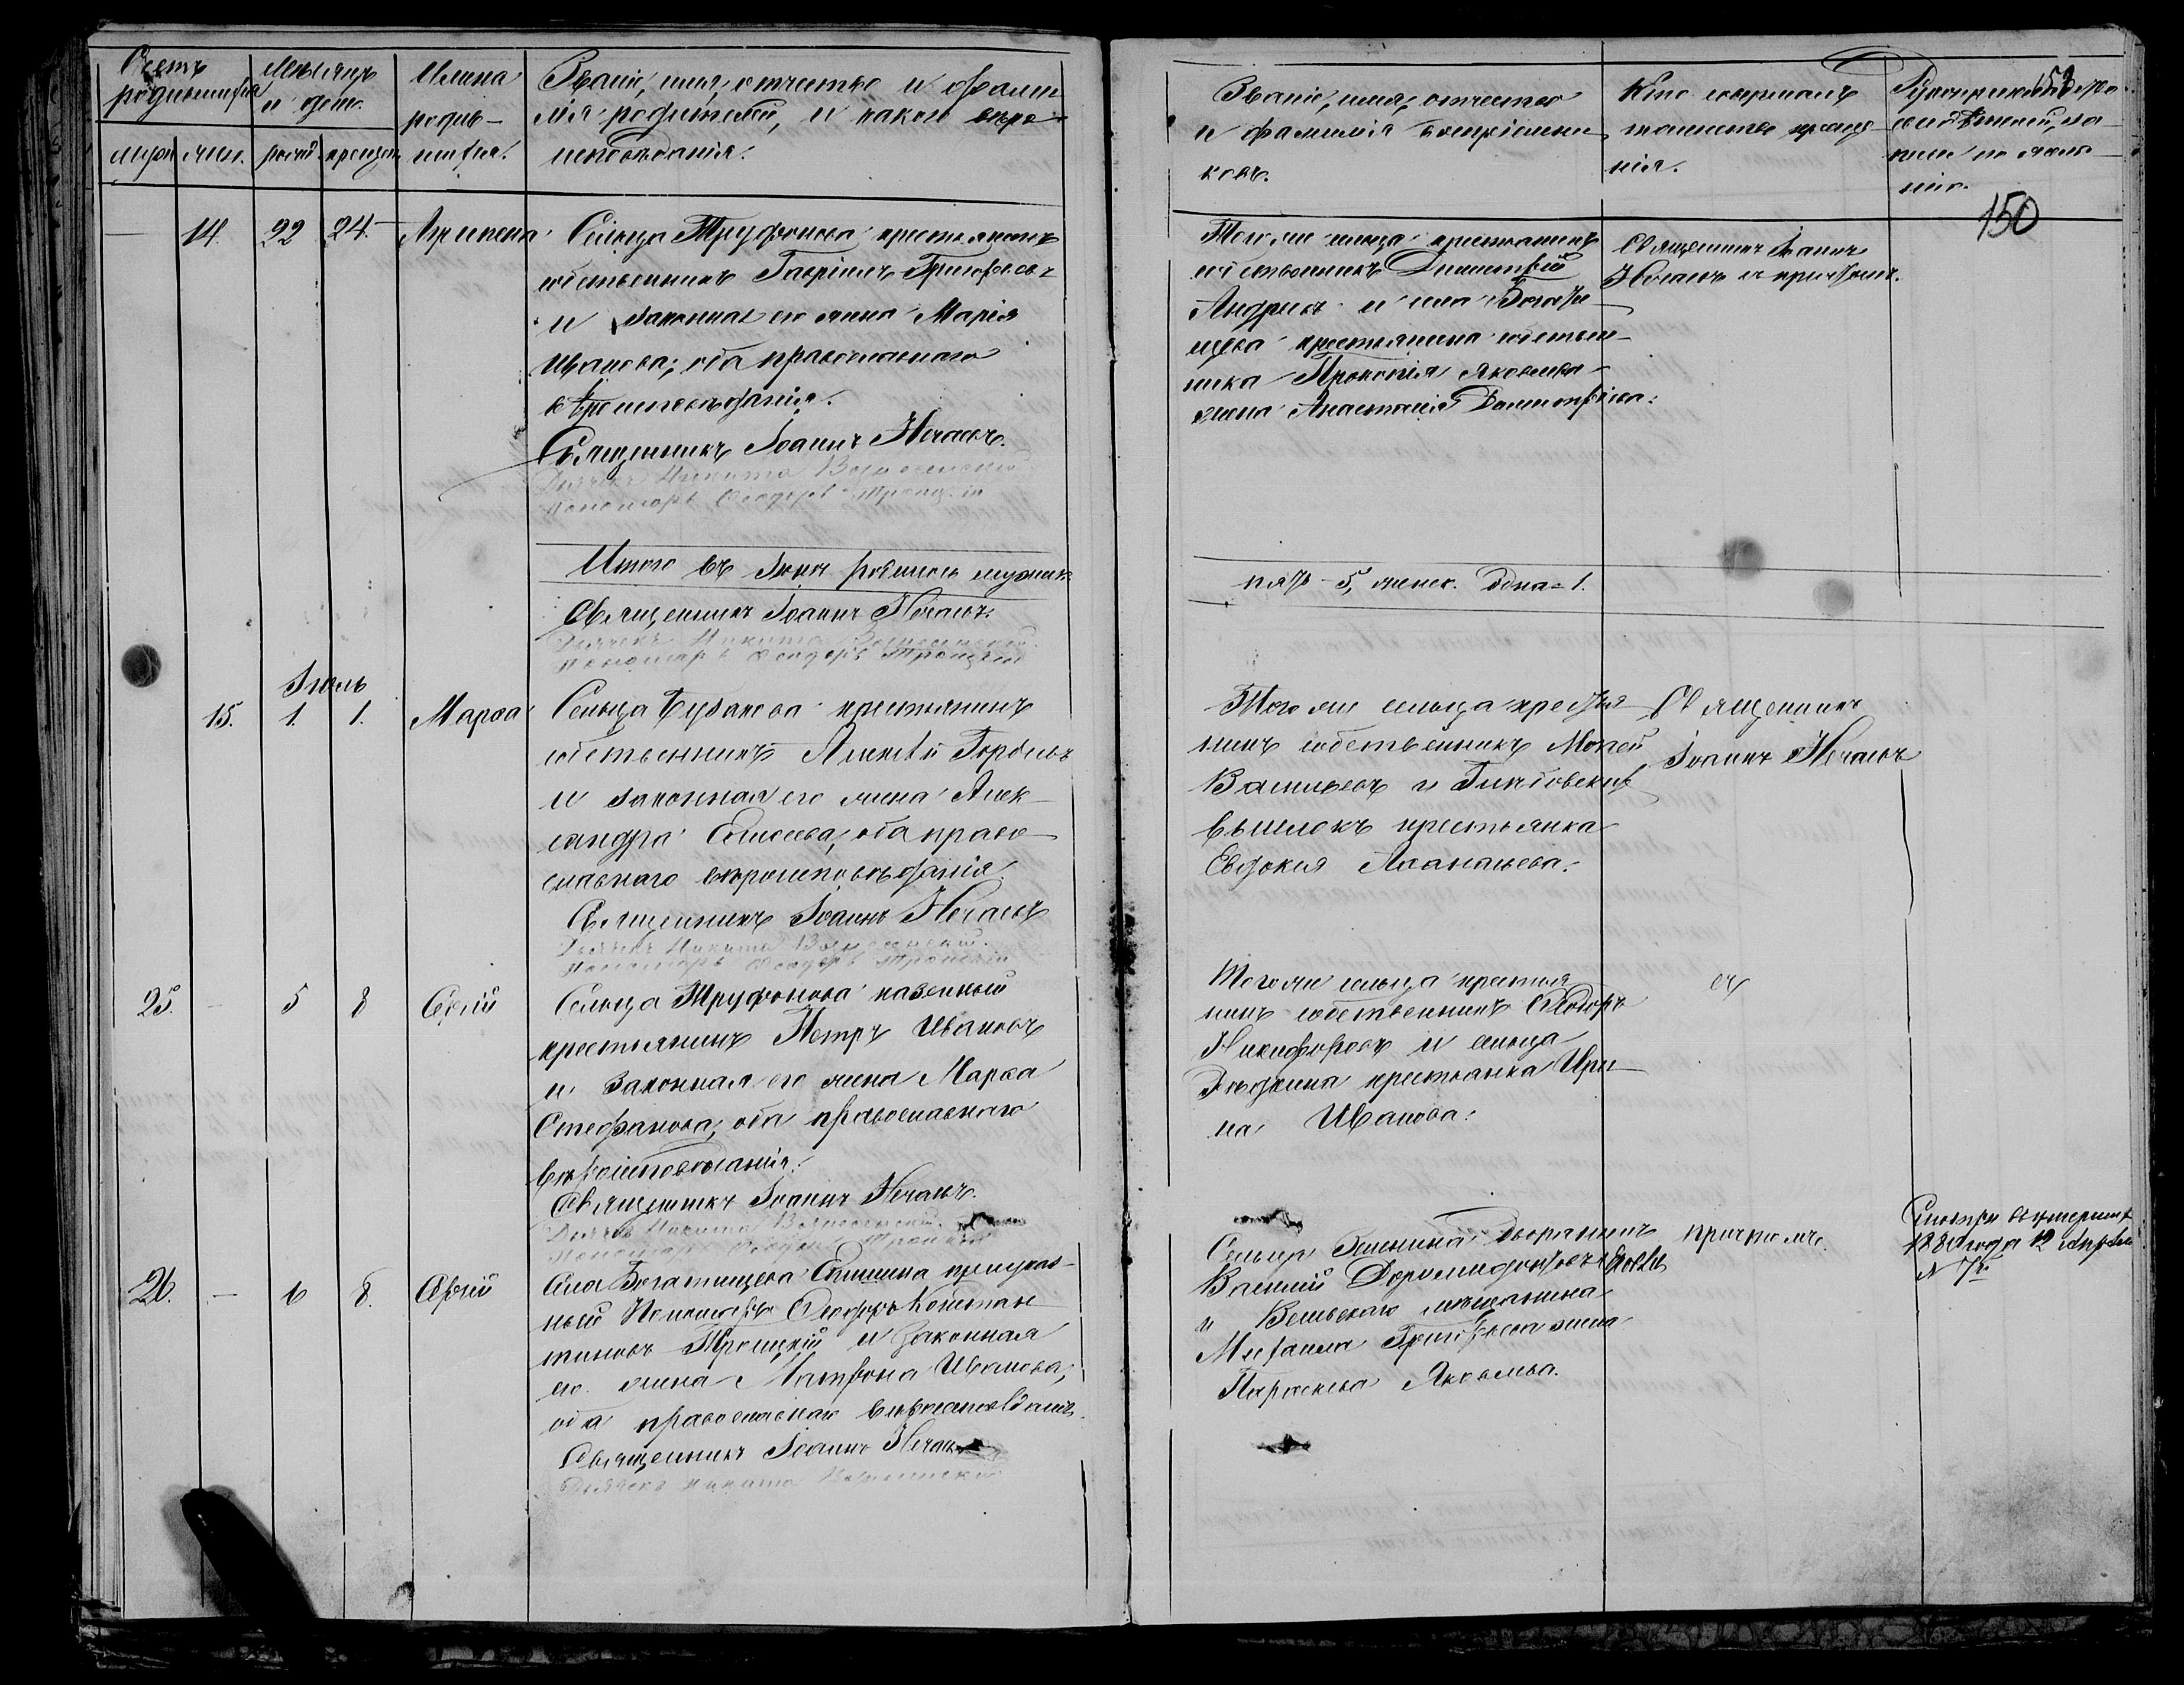 Счетъ родившихся
Мѣсяцъ и день.
Имена родив-
шихся.
Званіе, имя, отчество и фами
лія родителей, и какого вѣро-
исповѣданія.
муж. жен. рожд. крещен.
Званіе, имя, отчество
и фамилія воспріемни
ковъ.
Кто совершалъ
таинство креще-
нія.
150
14. 22 24. Агрипена
Сельца Труфонова крестьянинъ
собственникъ Гавріилъ Григорьевъ
и законная его жена Марія
Иванова; оба православнаго
вѣроисповѣданія.
Священникъ Іоаннъ Нечаевъ.
Дьячекъ Никита Вознесенскій
Пономарь Ѳеодоръ Троицкій
Того же сельца крестьянинъ
собственникъ Димитрій
Андреевъ и села Богати
щева крестьянина собствен-
ника Прокопія Яковлева
жена Анастасія Димитріева.
Священникъ Іоаннъ
Нечаевъ съ причтомъ.
Итого въ Іюнѣ родилось мужеск.
пять - 5, женск. одна = 1.
Священникъ Іоаннъ Нечаевъ.
Дьячекъ Никита Вознесенскій.
Пономарь Ѳеодоръ Троицкій
Іюль
15. 1. 1. Марѳа
Сельца крестьянинъ
собственникъ Алексѣй Гордѣевъ
и законная его жена Алек-
сандра Елисеева, оба право-
славнаго вѣроисповѣданія.
Священникъ Іоаннъ Нечаевъ
Дьячекъ Никита Вознесенскій.
Пономарь Ѳеодоръ Троицкій
Того же сельца крестья-
нинъ собственникъ Мокей
Васильевъ и
выселокъ крестьянка
Евдокия Аѳанасьева.
Священникъ
Іоаннъ Нечаевъ
25. - 5 8 Сергій
Сельца Труфонова казенный
крестьянинъ Петръ Ивановъ
и законная его жена Марѳа
Стефанова, оба православнаго
вѣроисповѣданія.
Священникъ Іоаннъ Нечаевъ.
Дьячекъ Никита Вознесенскій.
Пономарь Ѳеодоръ Троицкій
Того же сельца крестья
нинъ собственникъ Ѳеодоръ
Никифоровъ и сельца
крестьянка Ири-
на Иванова.
съ
26. - 6 8. Сергій
Села Богатищева Епишина
ный Пономарь Ѳеодоръ Констан
тиновъ Троицкій и законная
его жена Матрона Иванова,
оба православнаго вѣроисповѣданія.
Священникъ Іоаннъ Нечаевъ
Дьячекъ Никита Вознесенскій
Сельца дворянинъ
Василій
и мѣщанина
Михаила Григорьева жена
Параскева Яковлева.
причтомъ.
1880 года 12 Апрѣля
№ 7й